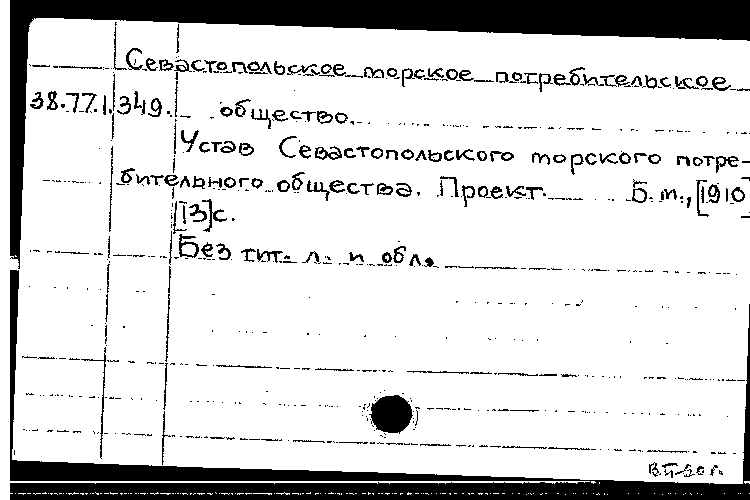 Севастопольское морское потребительское
38.77.1.349. общество.
Устав Севастопольского морского потре-
бительного общества. Проект. Б.м., [1910
[13]с.
Без тит. л. и обл.